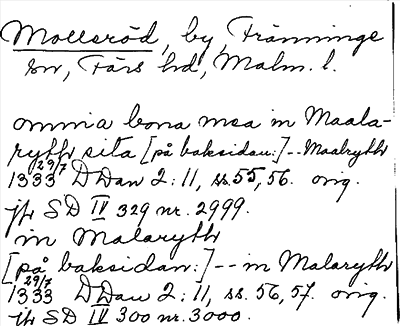 Mollsröd, by, Tranninge
sn, Färs hd, Malm. l.
omnia bona mea in Maala-
rythr sita [på baksidan:] -- Maalrythr
1333 29/7 DDan 2:11, ss. 55, 56. orig.
jfr SD IV 329 nr. 2999.
in Malarythr
[på baksidan:] -- in Malarythr
1333 29/7 DDan 2:11, ss. 56, 57. orig.
jfr SD IV 300 nr. 3000.